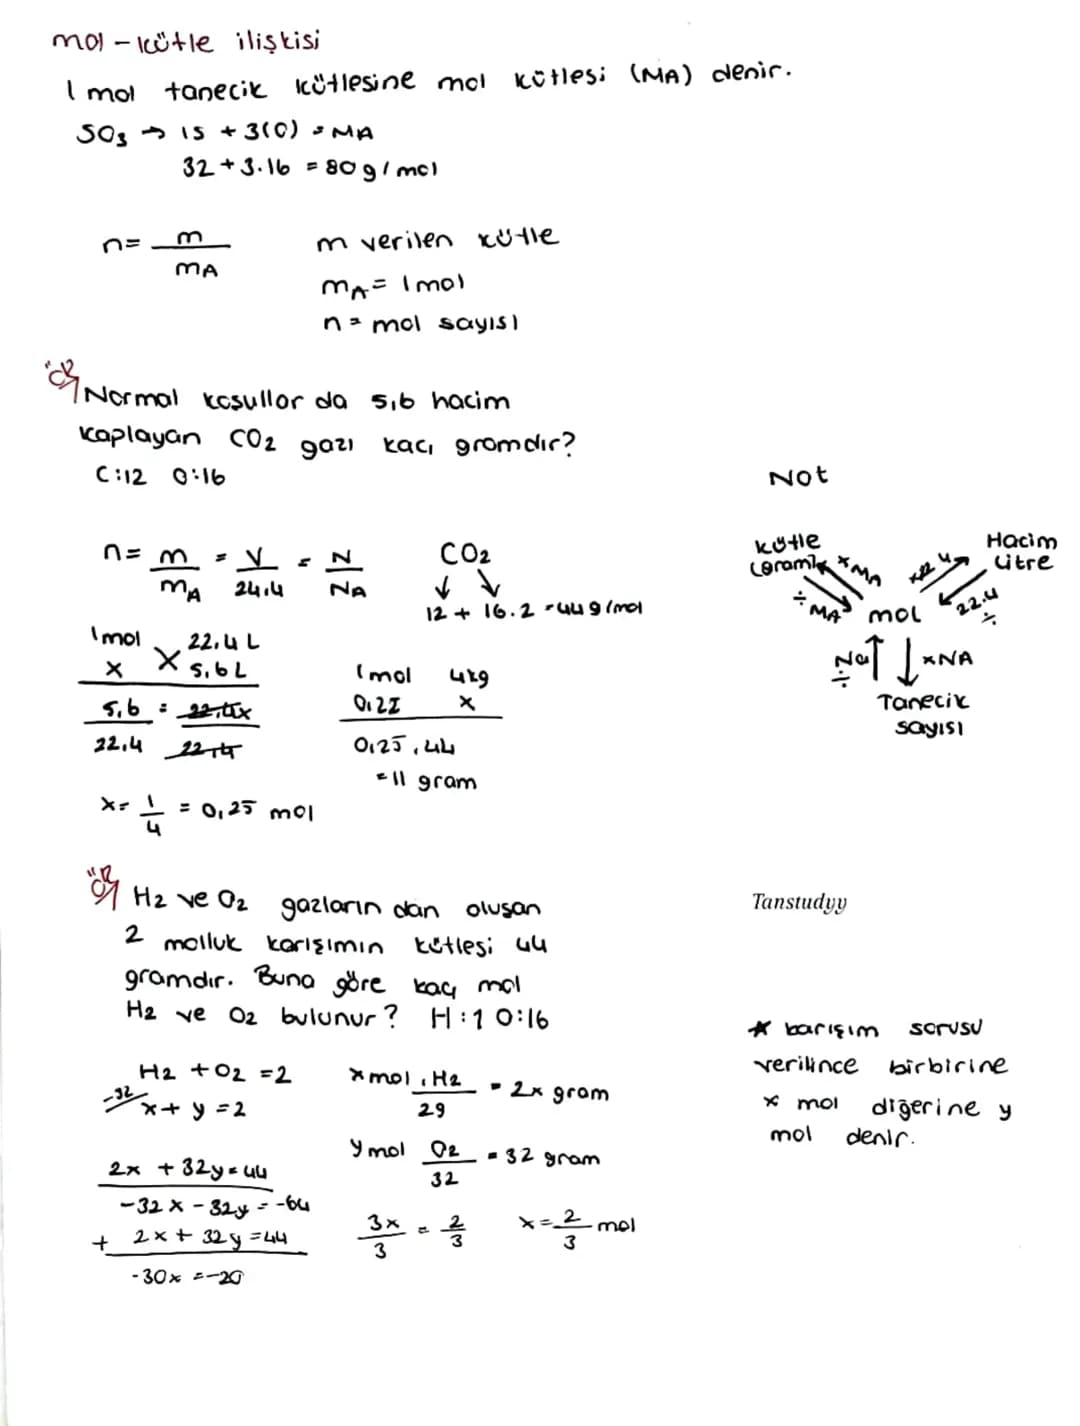 mol - kütle ilişkisi
1 mol tanecik kütlesine mol kütlesi (MA) denir.
SO3 → 1S + 3(O) = MA
32 + 3.16 = 80 g / mol
n = m / MA
m verilen kütle
mA = 1 mol
n = mol sayısı
ÖR/ Normal koşullor da 5,6 hacim
kaplayan CO2 gazı kaçı gromdır?
C:12 O:16
n = m / MA = V / 24,4 = N / NA
CO2
↓ ↘
12 + 16.2 = 44 g / mol
1 mol 22,4 L
x 5,6 L
5,6 = 22,4x
22,4 22,4
x = 1/4 = 0,25 mol
1 mol 44g
0,25 x
0,25 . 44
= 11 gram
Not
kütle (gram)
xMA
÷MA
mol
x22,4
22.4 ÷
Hacim Litre
Na ÷
xNA
Tanecik
sayısı
ÖR/ H2 ve O2 gazların dan oluşan
2 molluk karışımın kütlesi 44
gramdır. Buna göre kaç mol
H2 ve O2 bulunur? H:1 O:16
H2 + O2 = 2
-32/ x + y = 2
2x + 32y = 44
-32x - 32y = -64
+ 2x + 32y = 44
-30x = -20
x mol . H2 / 29 = 2x gram
y mol O2 / 32 = 32 gram
3x / 3 = 2 / 3
x = 2/3 mol
Tanstudyy
* barışım sorusu
verilince birbirine
x mol diğerine y
mol denir.